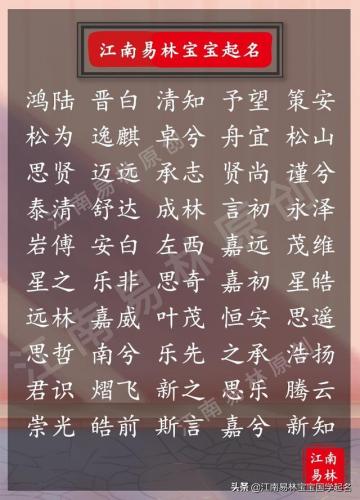 江南易林宝宝起名
鸿陆 晋白 清知 予望 策安
松为 逸麒 卓兮 舟宜 松山
思贤 迈远 承志 贤尚 谨兮
泰清 舒达 成林 言初 永泽
岩傅 安白 左西 嘉远 茂维
星之 乐非 思奇 嘉初 星皓
远林 嘉威 叶茂 恒安 思遥
思哲 南兮 乐先 之承 浩扬
君识 熠飞 新之 思乐 腾云
崇光 皓前 斯言 嘉兮 新知
江南易林原创
江南易林原创
江南易林原创
江南
易林
头条 @江南易林宝宝国学起名